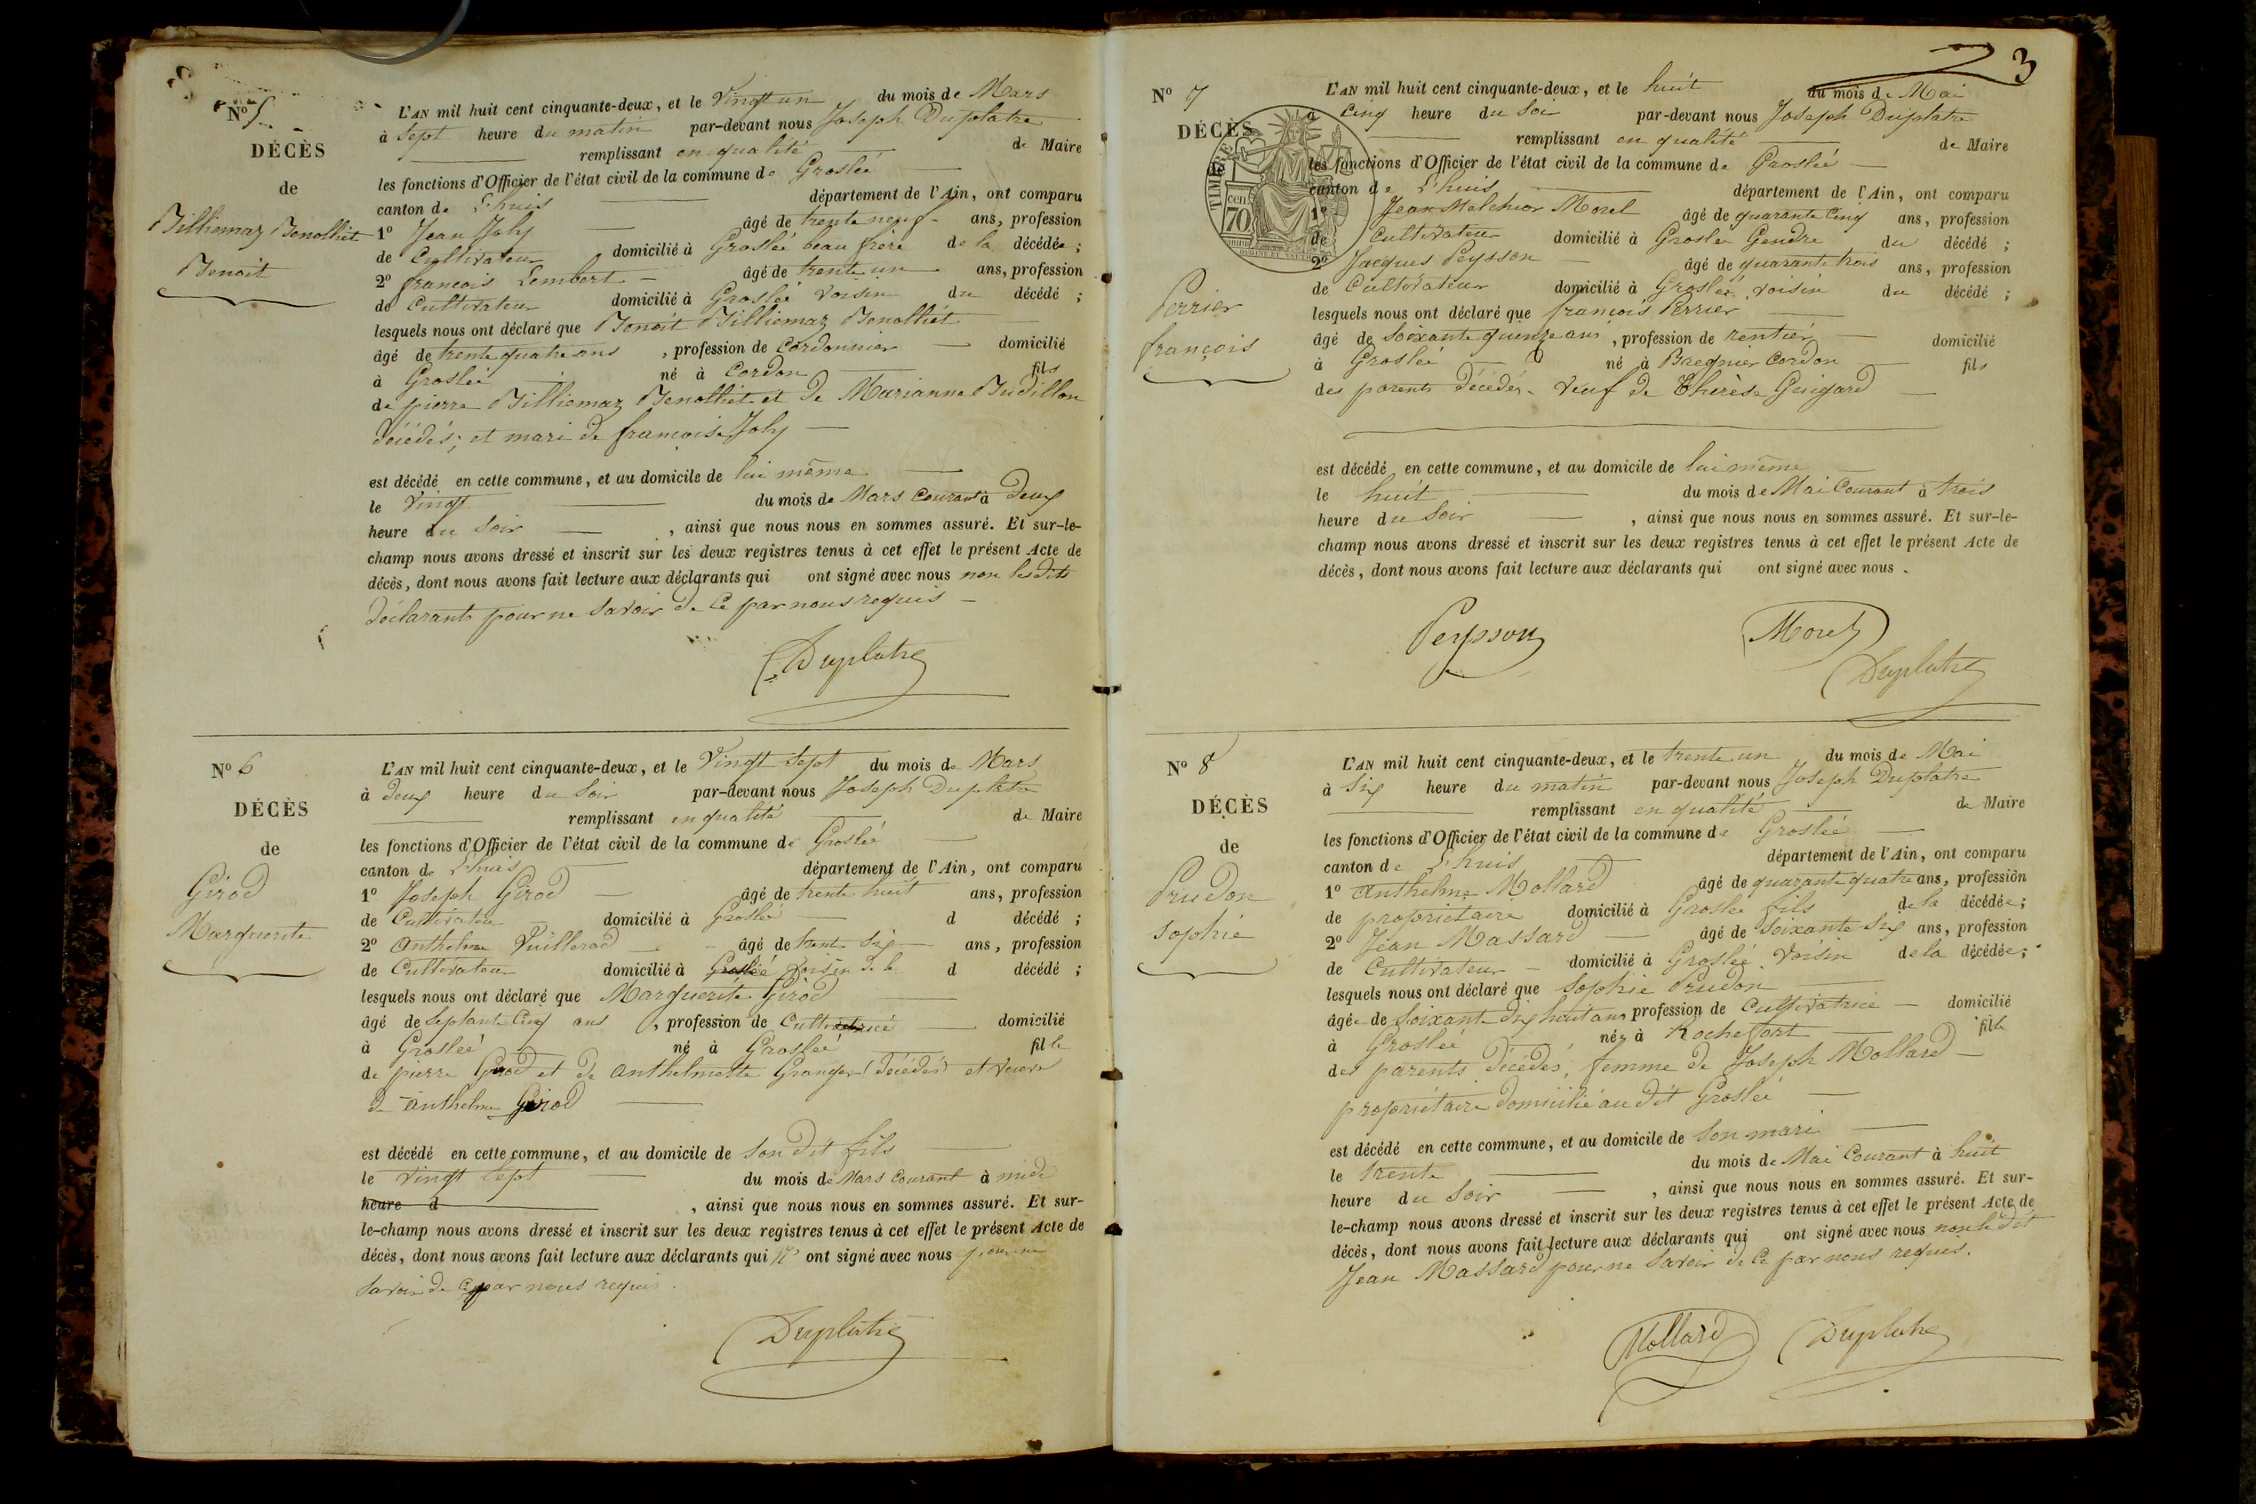 No 5
DÉCÈS
de
Billiemaz Benolliet
Benoit
L'AN mil huit cent cinquante-deux, et le Vingt un du mois de Mars
à Sept heure du matin par-devant nous Joseph Duplatre
remplissant en qualité de Maire
les fonctions d'Officier de l'état civil de la commune de Groslée
canton de L'huis département de l'Ain, ont comparu
1º Jean Joly âgé de trente neuf ans, profession
de Cultivateur domicilié à Groslée beau frere de la décédée ;
2º françois Lembert âgé de trente un ans, profession
de Cultivateur domicilié à Groslée voisin du décédé ;
lesquels nous ont déclaré que Benoit Billiemaz Benolliet
âgé de trente quatre ans , profession de Cordonnier domicilié
à Groslée né à Cordon fils
de pierre Billiemaz Benolliet et de Marianne Budillon
décédés; et mari de françoise Joly
est décédé en cette commune, et au domicile de lui même
le Vingt du mois de Mars Courant à Deux
heure du Soir , ainsi que nous nous en sommes assuré. Et sur-le-
champ nous avons dressé et inscrit sur les deux registres tenus à cet effet le présent Acte de
décès, dont nous avons fait lecture aux déclarants qui ont signé avec nous non lesdits
déclarants pour ne Savoir de Ce par nous requis
Duplatre
No 6
DÉCÈS
de
Girod
Marguerite
L'AN mil huit cent cinquante-deux, et le Vingt Sept du mois de Mars
à deux heure du Soir par-devant nous Joseph Duplatre
remplissant en qualité de Maire
les fonctions d'Officier de l'état civil de la commune de Groslée
canton de L'huis département de l'Ain, ont comparu
1º Joseph Girod âgé de trente huit ans, profession
de Cultivateur domicilié à Groslée d décédé ;
2º Anthelme Vuillerod âgé de trente Six ans, profession
de Cultivateur domicilié à Groslée voisin de la d décédé ;
lesquels nous ont déclaré que Marguerite Girod
âgé de Septante Cinq ans , profession de Cultivatrice domicilié
à Groslée né à Groslée fille
de pierre Girod et de Anthelmette Granger décédés et veuve
de Anthelme Girod
est décédé en cette commune, et au domicile de Son dit fils
le Vingt Sept du mois de Mars Courant à midi
heure d , ainsi que nous nous en sommes assuré. Et sur-
le-champ nous avons dressé et inscrit sur les deux registres tenus à cet effet le présent Acte de
décès, dont nous avons fait lecture aux déclarants qui ont signé avec nous pour ne
Savoir de Ce par nous requis.
Duplatre
3
No 7
DÉCÈS
de
Perrier
françois
TIMBRE
70 cen
L'AN mil huit cent cinquante-deux, et le huit du mois de Mai
à Cinq heure du Soir par-devant nous Joseph Duplatre
remplissant en qualité de Maire
les fonctions d'Officier de l'état civil de la commune de Groslée
canton de L'huis département de l'Ain, ont comparu
1º Jean Melchior Morel âgé de quarante Cinq ans, profession
de Cultivateur domicilié à Groslée Gendre du décédé ;
2º Jacques Peysson âgé de quarante trois ans, profession
de Cultivateur domicilié à Groslée voisin du décédé ;
lesquels nous ont déclaré que françois Perrier
âgé de Soixante quinze ans , profession de rentier domicilié
à Groslée né à Bregnier Cordon fils
des parents décédés. Veuf de Thérèse Guigard
est décédé en cette commune, et au domicile de lui même
le huit du mois de Mai Courant à trois
heure du Soir , ainsi que nous nous en sommes assuré. Et sur-le-
champ nous avons dressé et inscrit sur les deux registres tenus à cet effet le présent Acte de
décès, dont nous avons fait lecture aux déclarants qui ont signé avec nous .
Peysson Morel
Duplatre
No 8
DÉCÈS
de
Prudon
Sophie
L'AN mil huit cent cinquante-deux, et le trente un du mois de Mai
à Six heure du matin par-devant nous Joseph Duplatre
remplissant en qualité de Maire
les fonctions d'Officier de l'état civil de la commune de Groslée
canton de L'huis département de l'Ain, ont comparu
1º Anthelme Mollard âgé de quarante quatre ans, profession
de propriétaire domicilié à Groslée fils de la décédée ;
2º Jean Massard âgé de Soixante Six ans, profession
de Cultivateur domicilié à Groslée Voisin de la décédée ;
lesquels nous ont déclaré que Sophie Prudon
âgée de Soixante dix huit ans profession de Cultivatrice domicilié
à Groslée née à Rochefort fille
des parents décédés, femme de Joseph Mollard
propriétaire domicilié au dit Groslée
est décédé en cette commune, et au domicile de Son mari
le trente du mois de Mai Courant à huit
heure du Soir , ainsi que nous nous en sommes assuré. Et sur-
le-champ nous avons dressé et inscrit sur les deux registres tenus à cet effet le présent Acte de
décès, dont nous avons fait lecture aux déclarants qui ont signé avec nous non le dit
Jean Massard pour ne Savoir de Ce par nous requis.
Mollard Duplatre